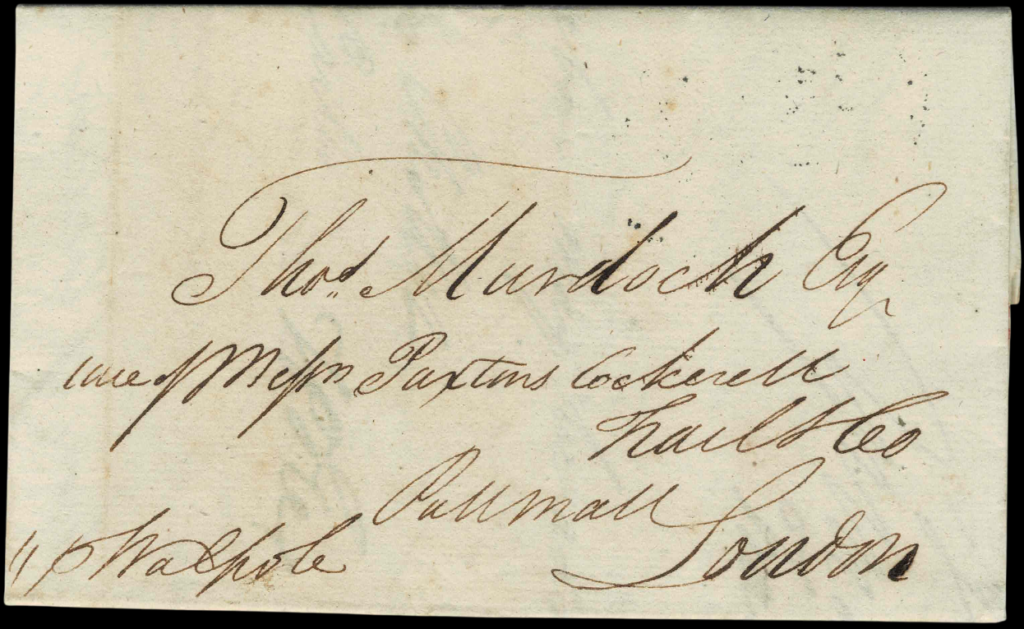 Thos. Murdoch Esq
care of Messrs Paxtons Cockerell
Trail & Co
Pallmall
London
p Walpole